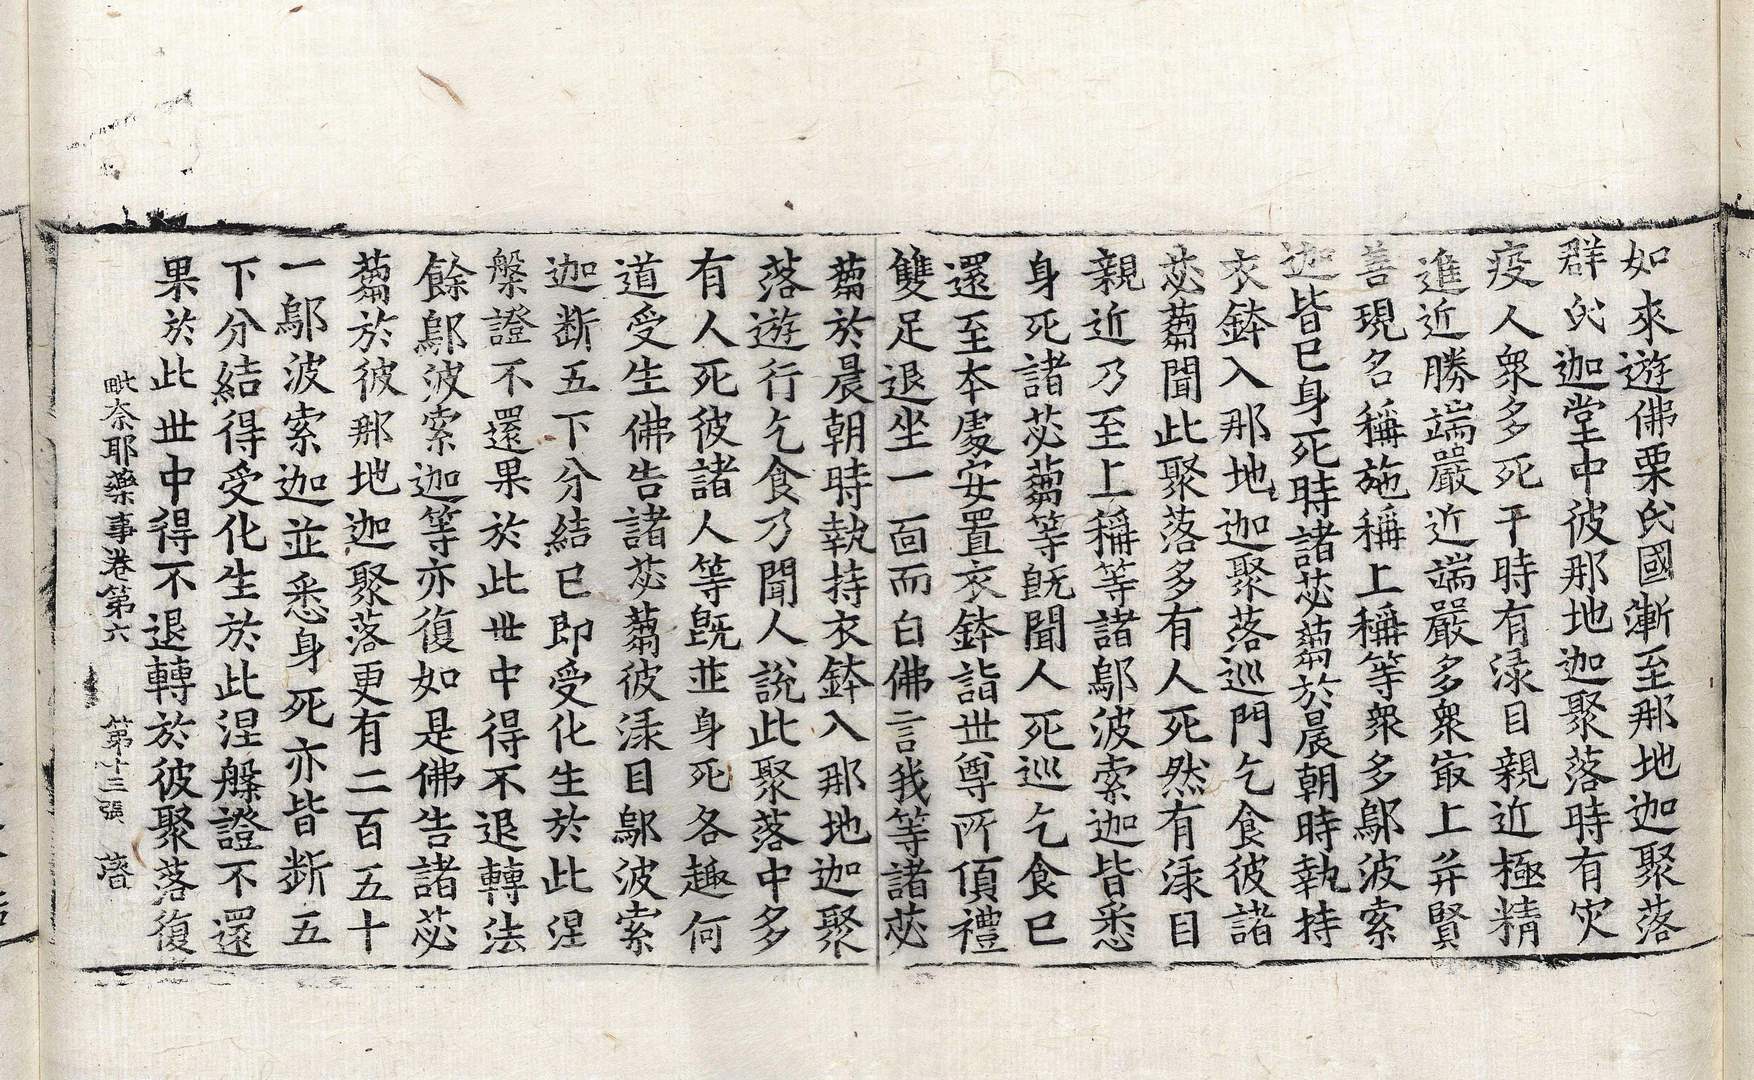 如來遊佛栗氏國漸至那地迦聚落
群氏迦堂中彼那地迦聚落時有灾
疫人衆多死于時有渌目親近極精
進近勝端嚴近端嚴多衆㝡上并賢
善現名稱施稱上稱等衆多鄔波索
迦皆已身死時諸苾蒭於晨朝時執持
衣鉢入那地迦聚落巡門乞食彼諸
苾蒭聞此聚落多有人死然有渌目
親近乃至上稱等諸鄔波索迦皆悉
身死諸苾蒭等既聞人死巡乞食已
還至本處安置衣鉢詣世尊所頂禮
雙足退坐一面而白佛言我等諸苾
蒭於晨朝時執持衣鉢入那地迦聚
落遊行乞食乃聞人說此聚落中多
有人死彼諸人等旣並身死各趣何
道受生佛告諸苾蒭彼渌目鄔波索
迦斷五下分結已即受化生於此涅
槃證不還果於此世中得不退轉法
餘鄔波索迦等亦復如是佛告諸苾
蒭於彼那地迦聚落更有二百五十
一鄔波索迦並悉身死亦皆斷五
下分結得受化生於此涅槃證不還
果於此世中得不退轉於彼聚落復
毗奈耶藥事卷第六 第十三張 薺